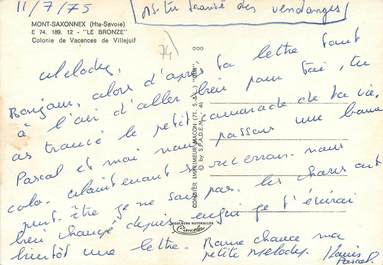 11/7/75
As-tu trouvé des vendanges ?
MONT-SAXONNEX (Hte-Savoie)
E 74. 189. 12 - "LE BRONZE"
Colonie de Vacances de Villejuif
74
Melody,
Bonjour, alors d'après ta lettre tout
a l'air d'aller bien pour toi, tu
as trouvé le petit camarade de ta vie,
Pascal et moi nous passons une bonne
colo. Maintenant se reverrons-nous
peut-être je ne sais pas. les choses ont
bien changé depuis enfin je t'écrirai
bientôt une lettre. Bonne chance ma
petite Melody.
Pascal
COMBIER IMPRIMEUR MACON (71. S.-&-L.) "CIM"
© by S.P.A.D.E.M.
COULEURS NATURELLES